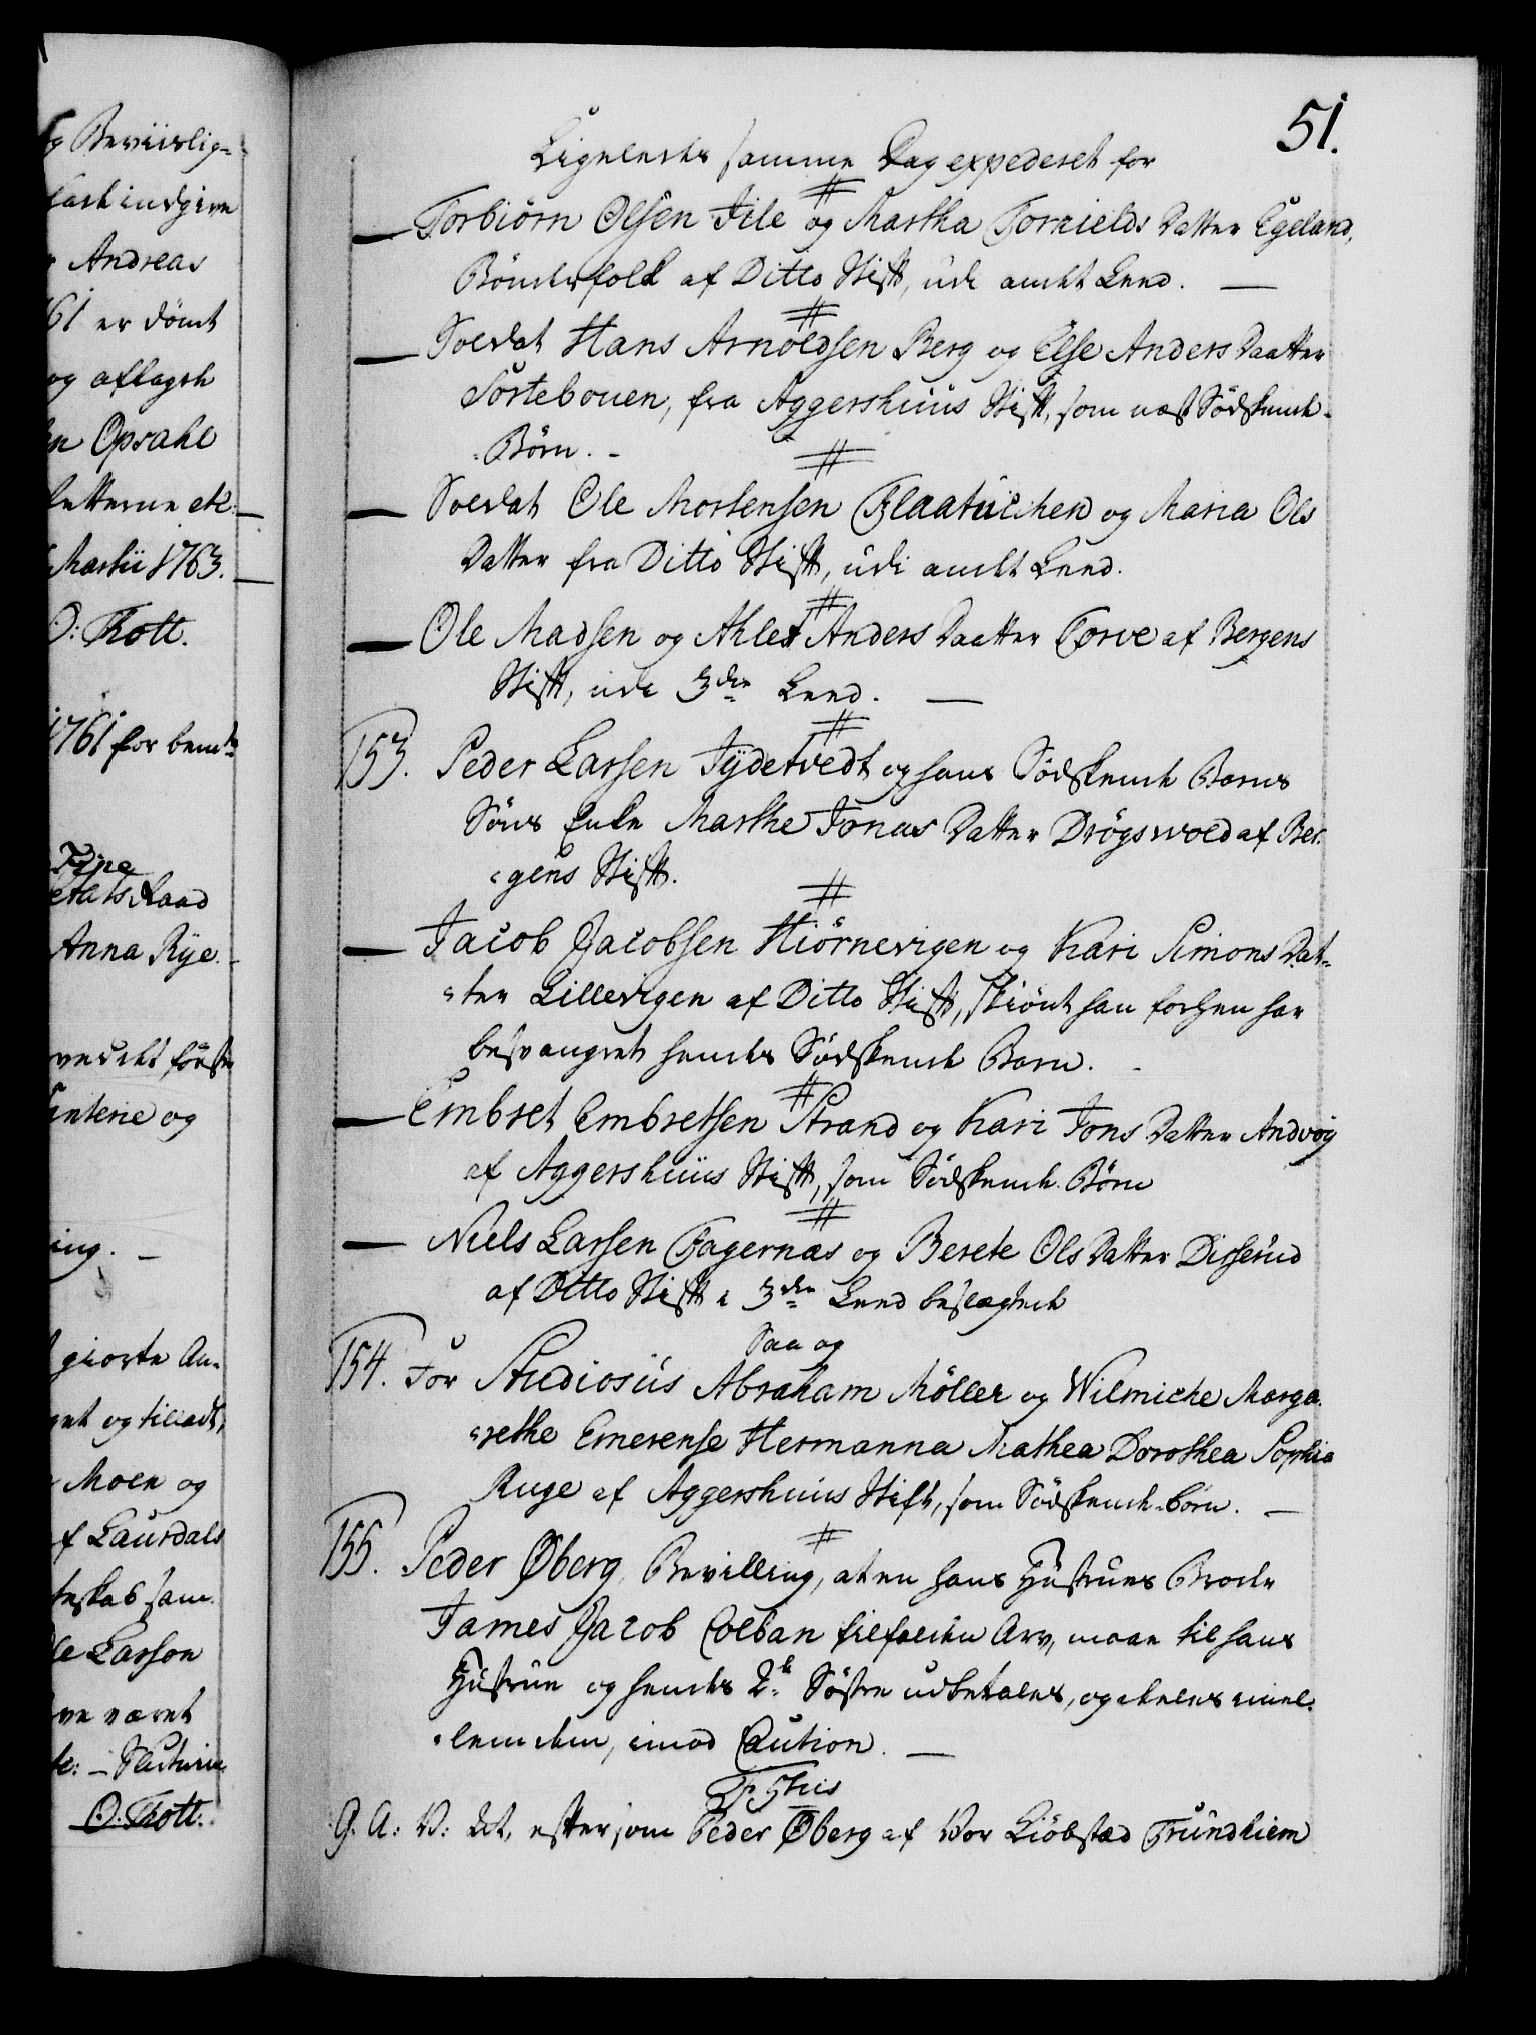 g Beviislig=
fast indgive
r Andreas
61 er dömt
og aflagde
n Opsahl
letterne etc: —
Martii 1763. —
O: Thott.
1761 for bemte
Fine
etats Raad
Anna Rye. -
første
anterie og
ing. —
giorte An-
get og tilladt,
Moen og
f Laurdals
teskab sam-
le Larson
ve været
O. Thott.
51.
Ligeledes samme Dag expederet for
— Torbiörn Olsen File og Martha Tornields Datter Egeland,
Bönderfolk af Ditto Stift, udi andet Leed. —
— Soldat Hans Arnoldsen Berg og Else Anders Daatter
Sortebouen, fra Aggershuus Stift, som næst Södskende-
-Börn. -
— Soldat Ole Mortensen Flaatülchen og Maria Ols
Datter fra Ditto Stift, udi andet Leed.
— Ole Madsen og Ahlet Anders Daatter Torve af Bergens
Stift, udi 3die Leed. —
153. Peder Larsen Tydetvedt og hans Södskende Barns
Söns Enke Marthe Jonas Datter Drögswold af Ber-
gens Stift.
— Jacob Jacobsen Hiörnevigen og Kari Simons Dat=
=ter Lillevigen af Ditto Stift, skiönt han forhen har
besvangret hendes Södskende Barn. -
— Embret Embretsen Strand og Kari Jons Datter Andvög
af Aggershuus Stift, som Södskende Börn
— Niels Larsen Fagernæs og Berete Ols Datter Disserud
af Ditto Stift i 3die Leed beslægtede
Saa og
154. For Studiosus Abraham Möller og Wilmiche Marga-
=rethe Emerense Hermanna Mathea Dorothea Sophia
Ruge af Aggershuus Stift, som Södskende-börn. —
155. Peder Øberg Bevilling, at en hans Hustrues Broder
James Jacob Colban tilfalden Arv, maae til hans
Hustrue og hendes 2de Söstre udbetales, og deeles imel-
-lem dem, imod Caution. —
F 5tus
G. A: V: At, eftersom Peder Øberg af Vor Kiöbstæd Trundhiem